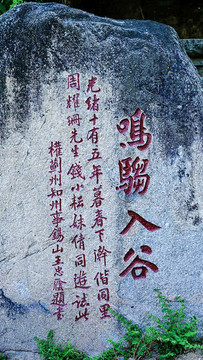 鳴騶入谷
光緒十有五年暮春下澣偕同里
周耀珊先生錢小松妹倩同遊誌此
權薊州知州事錫山王忠蔭題書